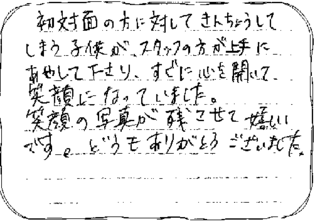 初対面の方に対してきんちょうして
しまう子供が、スタッフの方が上手に
あやして下さり、すぐに心を開いて
笑顔になっていました。
笑顔の写真が残させて嬉しい
です。どうもありがとうございました。